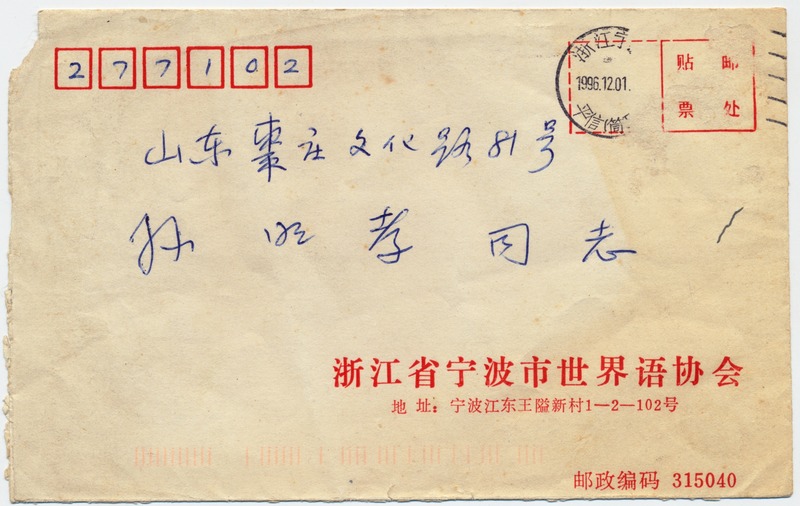 277102
浙江宁
1996.12.01.
贴 邮
票 处
山东枣庄文化路81号
孙明孝同志
浙江省宁波市世界语协会
地 址：宁波江东王隘新村1—2—102号
邮政编码 315040